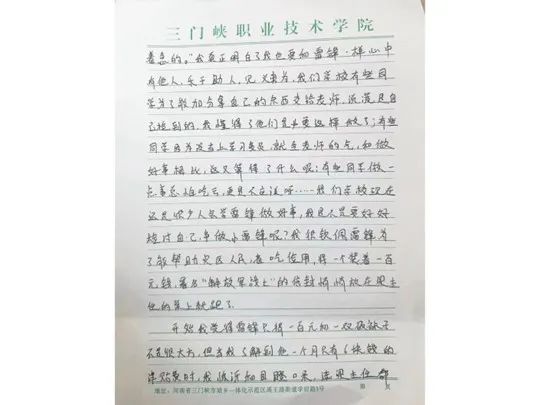 三门峡职业技术学院
着急的。"我真正明白了我也要和雷锋一样心中
有他人,乐于助人,见义勇为,我们学校有些同
学为了教加分拿自己的东西交给老师,谎谎是自
己捡到的,我懂得了他们是要这样做了;有些
同学因为发生学习委员,就生老师的气,和做
好事相比,这又算得了什么呢;有些同学做一
点事总怕吃亏,更是不应该呀……我们学校现在
这是很少人在学雷锋做好事,我是不是要好好
检讨自己,争做小雷锋呢?我很钦佩雷锋为
了能帮助灾区人民,省吃俭用,将一个装着一百
元钱,署名"解放军战士"的信封悄悄放在班主
任的桌上就跑了
开始我觉得雷锋只捐一百元和一双破袜子
不是很大方,但当我了解到他一个月只有6块钱的
津贴费时,我惊讶得目瞪口呆,连班主任都
地址:河南省三门峡市城乡一体化示范区禹王路街道学府路1号
第 页